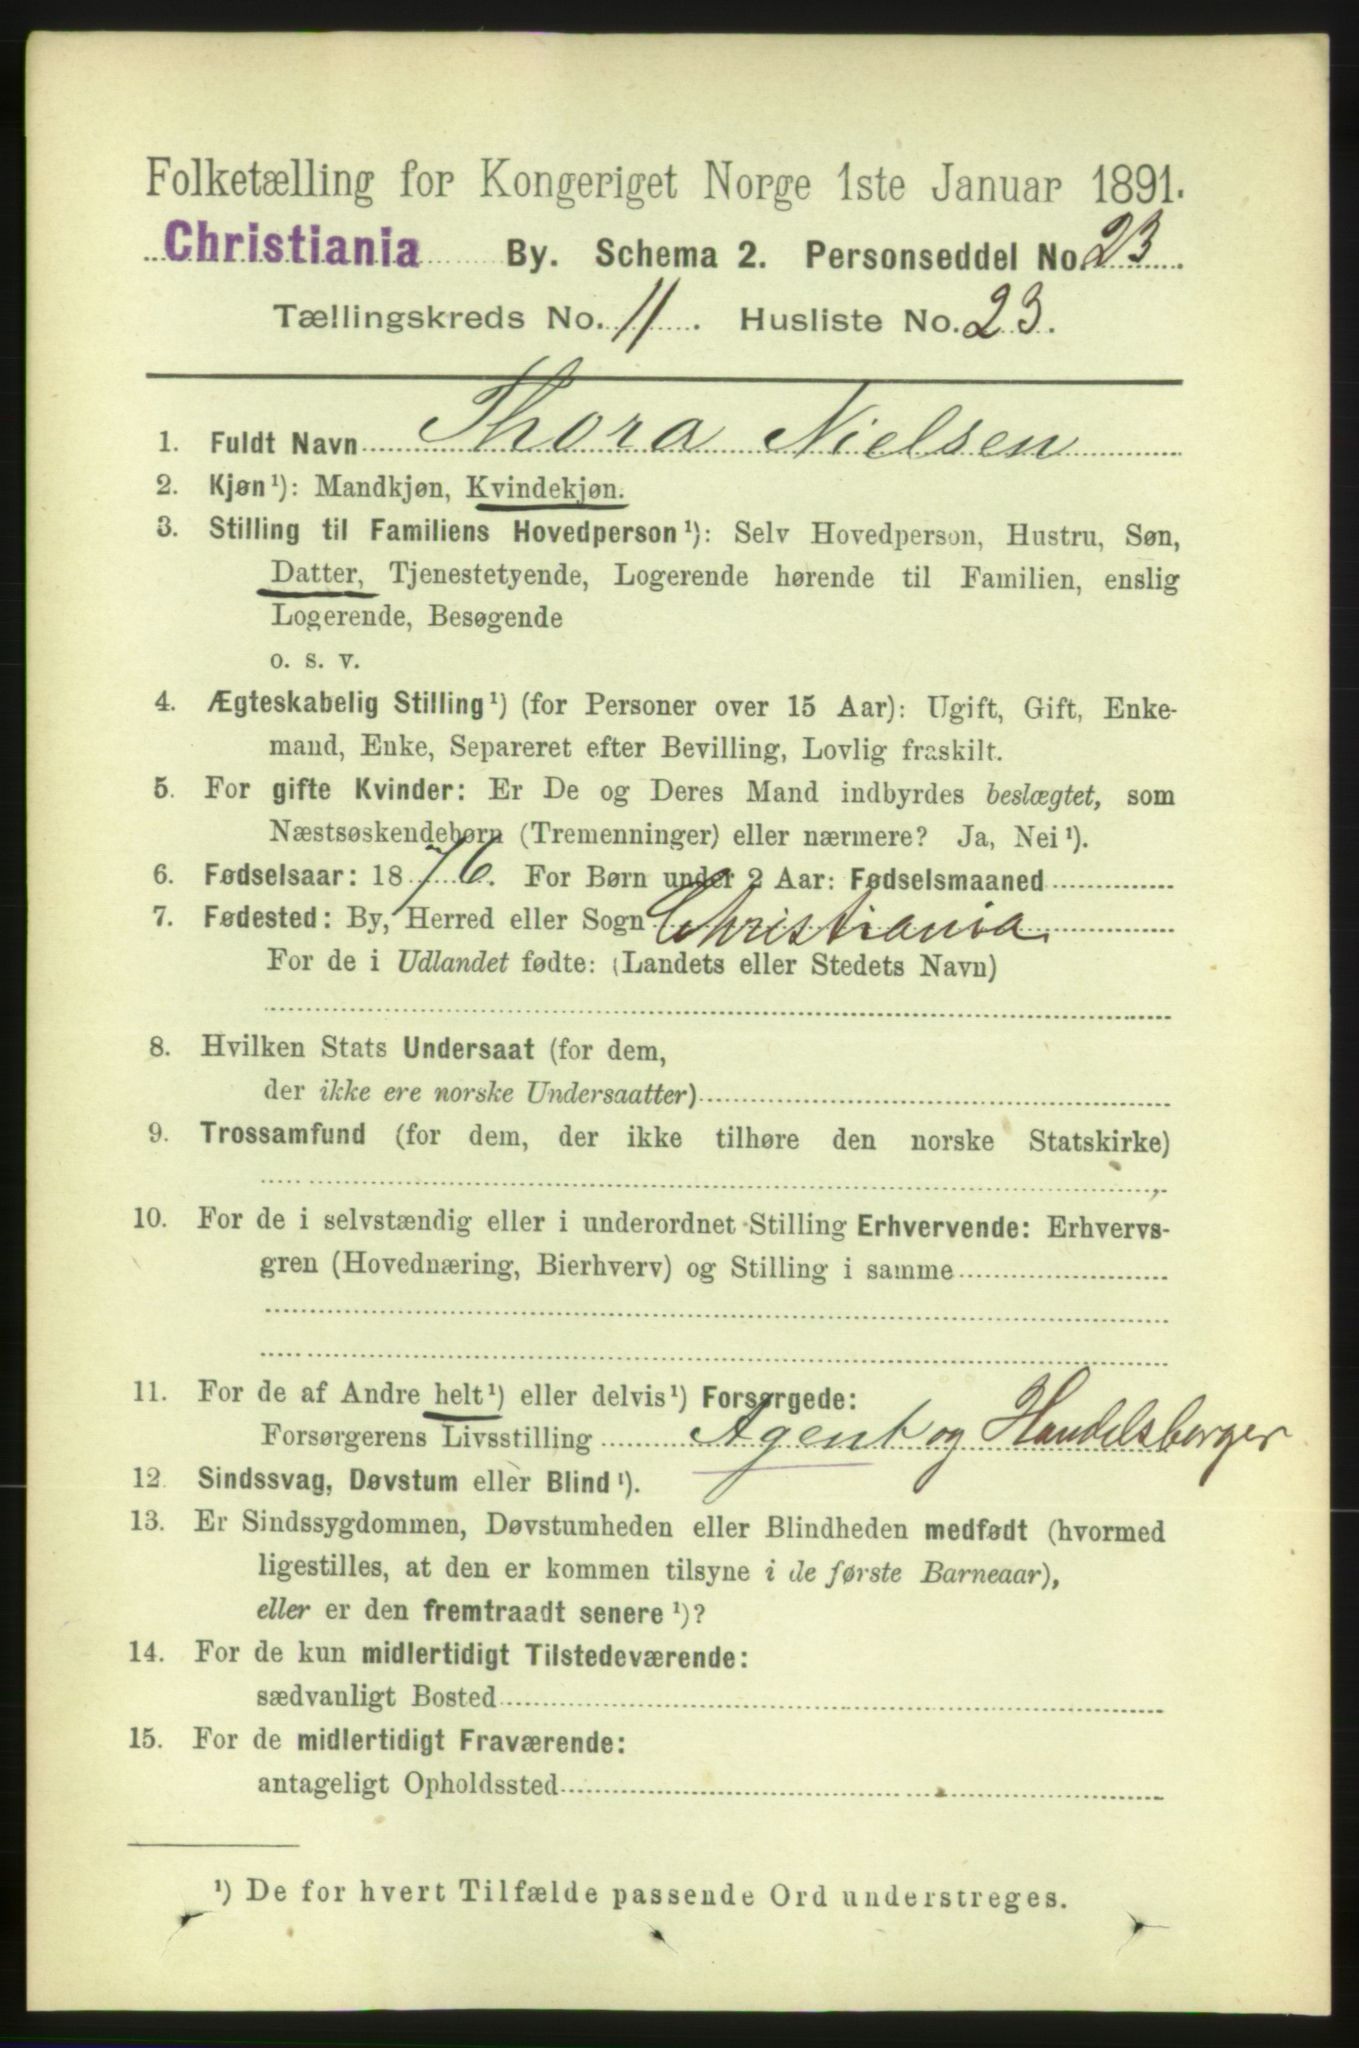 Folketælling for Kongeriget Norge 1ste Januar 1891.
Christiania By. Schema 2. Personseddel No. 23.
Tællingskreds No. 11. Husliste No. 23.
1. Fuldt Navn Thora Nielsen
2. Kjøn¹): Mandkjøn, Kvindekjøn.
3. Stilling til Familiens Hovedperson¹): Selv Hovedperson, Hustru, Søn,
Datter, Tjenestetyende, Logerende hørende til Familien, enslig
Logerende, Besøgende
o. s. v.
4. Ægteskabelig Stilling¹) (for Personer over 15 Aar): Ugift, Gift, Enke-
mand, Enke, Separeret efter Bevilling, Lovlig fraskilt.
5. For gifte Kvinder: Er De og Deres Mand indbyrdes beslægtet, som
Næstsøskendebørn (Tremenninger) eller nærmere? Ja, Nei¹).
6. Fødselsaar: 1876. For Børn under 2 Aar: Fødselsmaaned
7. Fødested: By, Herred eller Sogn Christiania
For de i Udlandet fødte: (Landets eller Stedets Navn)
8. Hvilken Stats Undersaat (for dem,
der ikke ere norske Undersaatter)
9. Trossamfund (for dem, der ikke tilhøre den norske Statskirke)
10. For de i selvstændig eller i underordnet Stilling Erhvervende: Erhvervs-
gren (Hovednæring, Bierhverv) og Stilling i samme
11. For de af Andre helt¹) eller delvis¹) Forsørgede:
Forsørgerens Livsstilling Agent og Handelsborger
12. Sindssvag, Døvstum eller Blind¹).
13. Er Sindssygdommen, Døvstumheden eller Blindheden medfødt (hvormed
ligestilles, at den er kommen tilsyne i de første Barneaar),
eller er den fremtraadt senere¹)?
14. For de kun midlertidigt Tilstedeværende:
sædvanligt Bosted
15. For de midlertidigt Fraværende:
antageligt Opholdssted
¹) De for hvert Tilfælde passende Ord understreges.